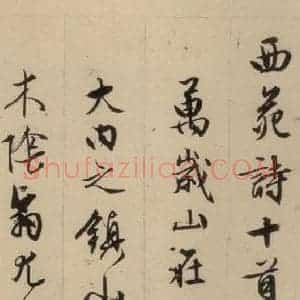 西苑詩十首
萬歲山在
大内之鎮山
木陰翳尤
shufaziliao.COM